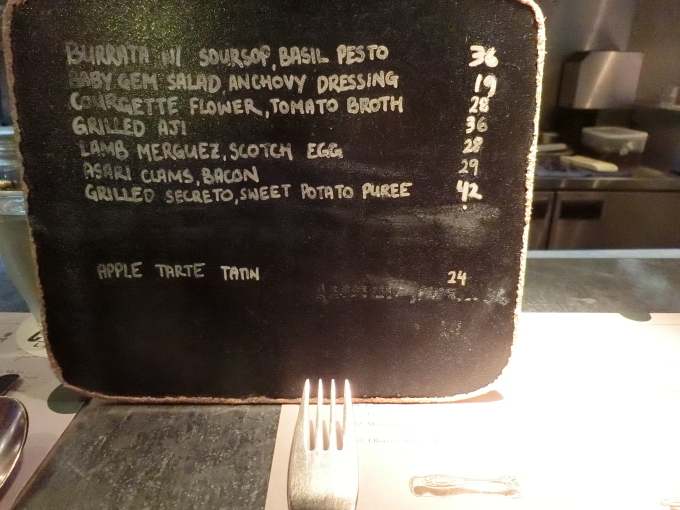 BURRATA N' SOURSOP, BASIL PESTO 36
BABY GEM SALAD, ANCHOVY DRESSING 19
COURGETTE FLOWER, TOMATO BROTH 28
GRILLED AJI 36
LAMB MERGUEZ, SCOTCH EGG 28
ASARI CLAMS, BACON 29
GRILLED SECRETO, SWEET POTATO PUREE 42
APPLE TARTE TATIN 24